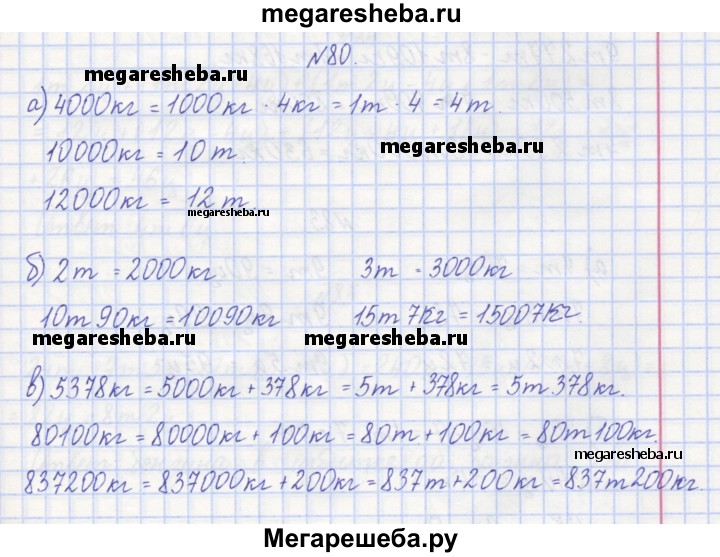 megaresheba.ru
№80.
megaresheba.ru
а) 4000кг = 1000кг · 4кг = 1т · 4 = 4т.
10000кг = 10т.
megaresheba.ru
12000кг = 12т.
megaresheba.ru
б) 2т = 2000кг 3т = 3000кг
10т 90кг = 10090кг 15т 7кг = 15007кг.
megaresheba.ru megaresheba.ru
в) 5378кг = 5000кг + 378кг = 5т + 378кг = 5т 378кг.
80100кг = 80000кг + 100кг = 80т + 100кг = 80т 100кг.
megaresheba.ru
837200кг = 837000кг + 200кг = 837т + 200кг = 837т 200кг.
Мегарешеба.ру